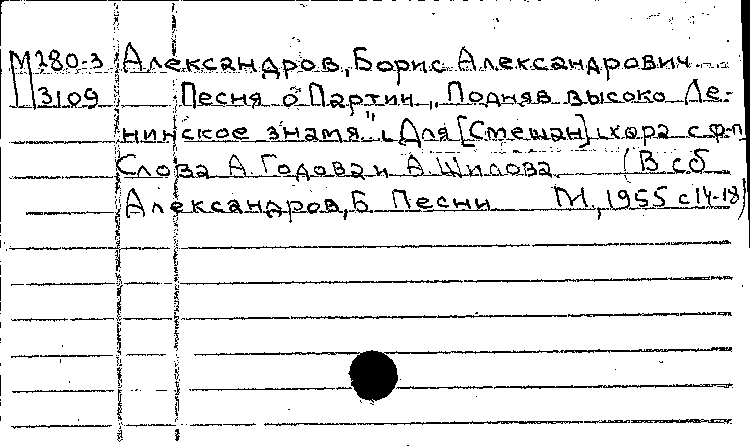 М280-3 Александров, Борис Александрович
3109 Песня о Партии "Подняв высоко Ле-
нинское знамя". Для [смешан] хора с ф-п
Слова А. Годова и А. Шилова. (В сб
Александров, Б. Песни М., 1955 с 14-18)